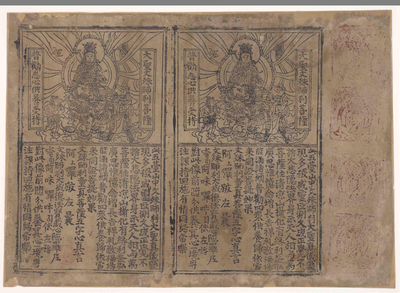 大聖文殊師利菩薩
普勸志心供養受持
此五臺山中文殊師利大聖真儀變
現多般威靈叵測久成正覺不
捨大悲隱法界身示天人相與萬
菩薩住清涼山攝化有緣利益弘
廣思惟憶念增長吉祥禮敬稱揚
能滿諸願普勸四眾供養歸依當
來同證菩提妙果
文殊師利童真菩薩五字心真言
阿囉跛左曩
文殊師利大威德法寶藏心陀羅尼
唵引阿味囉吽引佉左洛
對此像前隨分供養冥心一境專
注課持回施有情同歸常樂
大聖文殊師利菩薩
普勸志心供養受持
此五臺山中文殊師利大聖真儀變
現多般威靈叵測久成正覺不
捨大悲隱法界身示天人相與萬
菩薩住清涼山攝化有緣利益弘
廣思惟憶念增長吉祥禮敬稱揚
能滿諸願普勸四眾供養歸依當
來同證菩提妙果
文殊師利童真菩薩五字心真言
阿囉跛左曩
文殊師利大威德法寶藏心陀羅尼
唵引阿味囉吽引佉左洛
對此像前隨分供養冥心一境專
注課持回施有情同歸常樂